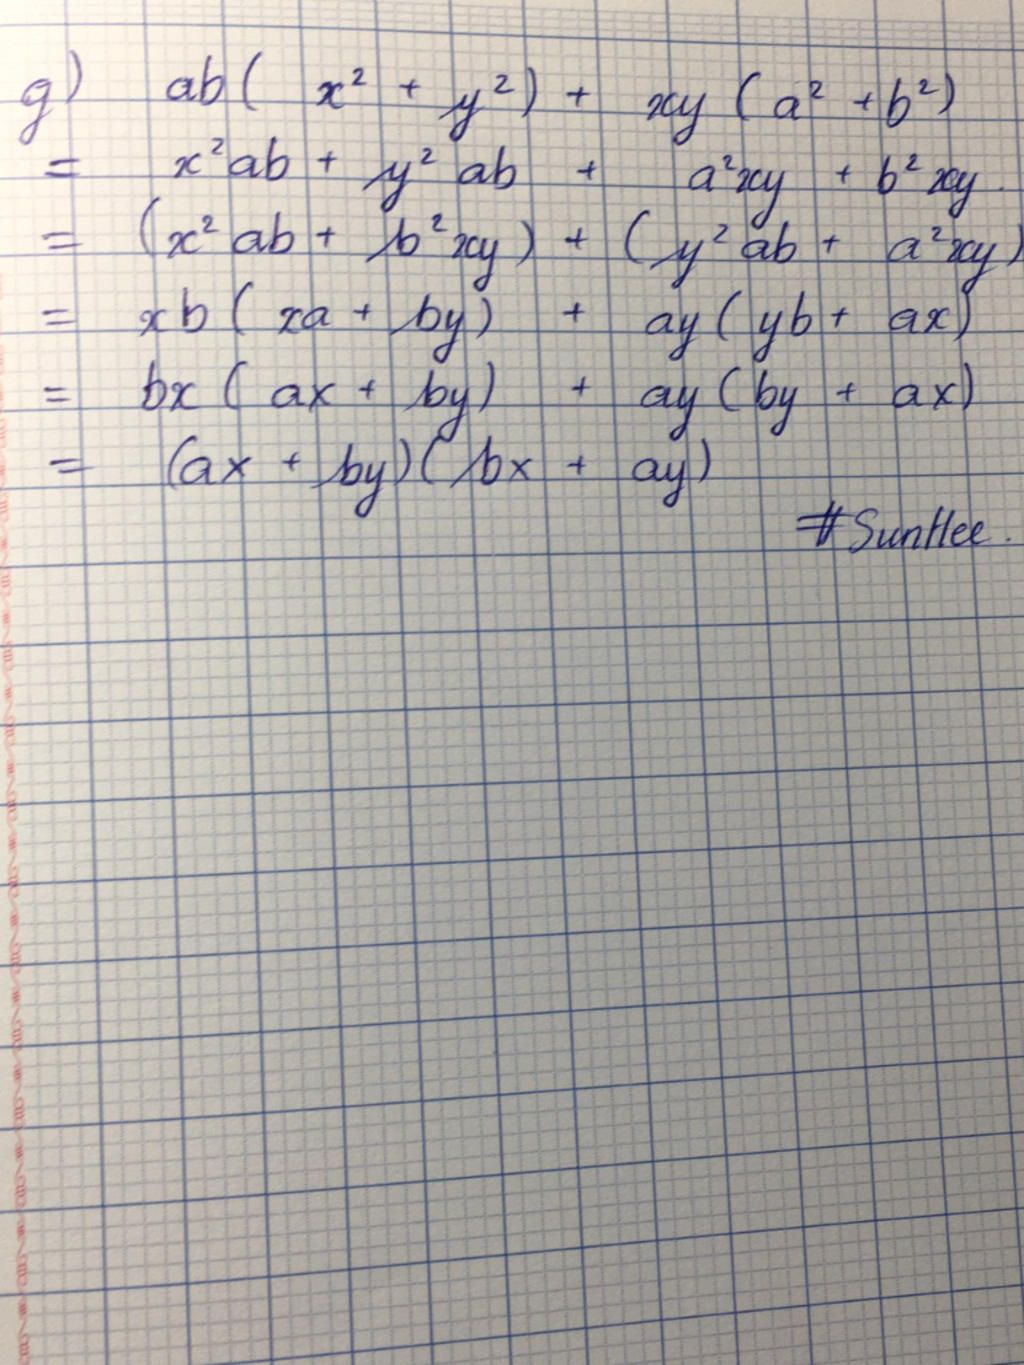 g) ab( x² + y²) + xy (a² + b²)
= x²ab + y² ab + a²xy + b² xy.
= (x² ab + b²xy) + (y² ab + a²xy)
= xb ( xa + by) + ay (yb + ax)
= bx ( ax + by) + ay (by + ax)
= (ax + by)( bx + ay)
#SunHee.